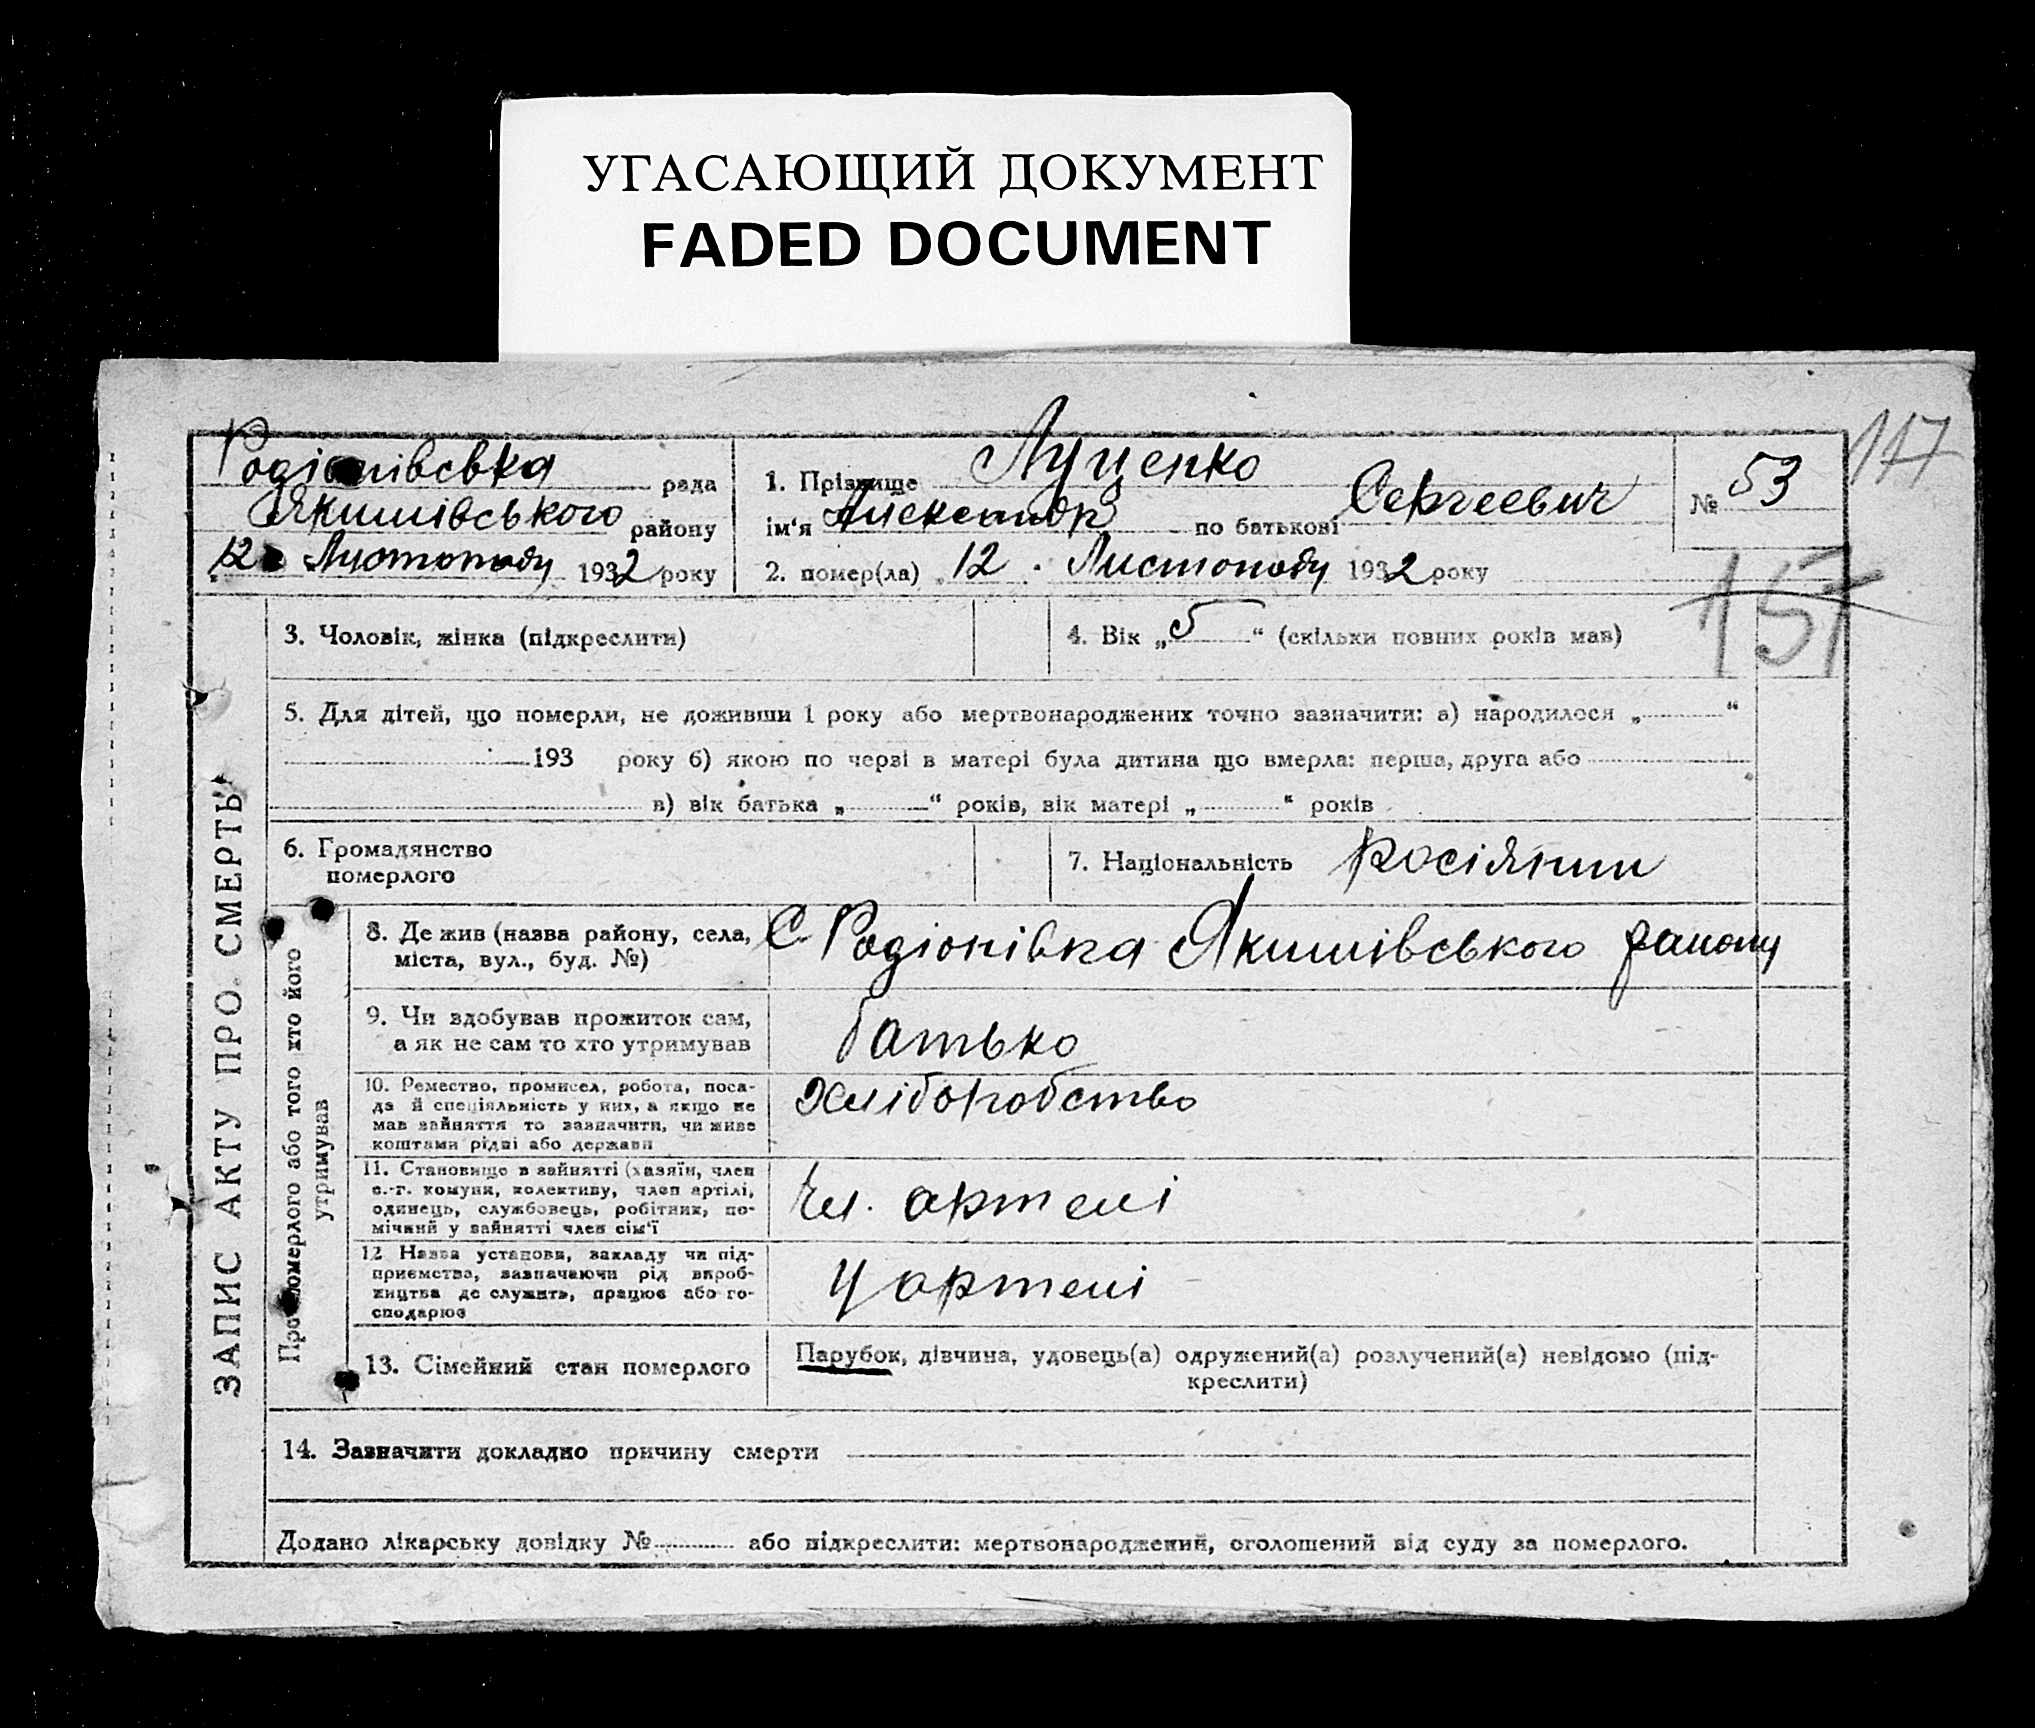 УГАСАЮЩИЙ ДОКУМЕНТ
FADED DOCUMENT
117
Родіонівська рада
Якимівського району
12 Листопаду 1932 року
1. Прізвище Луценко
ім‘я Александр по батькові Сергеевич
№ 53
2. помер(ла) „12. Листопаду 1932 року
157
ЗАПИС АКТУ ПРО СМЕРТЬ
3. Чоловік, жінка (підкреслити)
4. Вік „5“ (скільки повних років мав)
5. Для дітей, що померли, не доживши 1 року або мертвонароджених точно зазначити: а) народилося „ “
193 року б) якою по черзі в матері була дитина що вмерла: перша, друга або
в) вік батька „ “ років, вік матері „ “ років
6. Громадянство
померлого
7. Національність Росіянин
Про померлого або того хто його
утримував
8. Де жив (назва району, села,
міста, вул., буд. №)
С Родіонівка Якимівського району
9. Чи здобував прожиток сам,
а як не сам то хто утримував
батько
10. Ремество, промисел, робота, поса-
да й спеціяльність у них, а якщо не
мав зайняття то зазначити, чи живе
коштами рідні або держави
Хліборобство
11. Становище в зайнятті (хазяїн, член
с.-г. комуни, колективу, член артілі,
одинець, службовець, робітник, по-
мічний у зайнятті член сім‘ї
Чл. артелі
12 Назва установи, закладу чи під-
приємства, зазначаючи рід вироб-
жицтва де служить, працює або го-
сподарює
У артелі
13. Сімейний стан померлого
Парубок, дівчина, удовець(а) одружений(а) розлучений(а) невідомо (під-
креслити)
14. Зазначити докладно причину смерти
Додано лікарську довідку № або підкреслити: мертвонароджений, оголошений від суду за померлого.